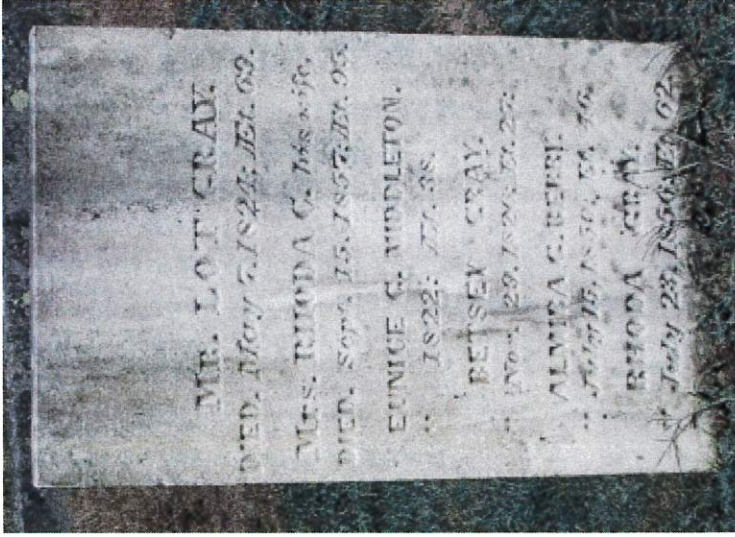 MR. LOT GRAY.
DIED. May 7, 1824; Æt. 69.
Mrs. RHODA C. his wife,
DIED. Sept. 15, 1857; Æt. 95.
EUNICE G. MIDDLETON.
" 1822; Æt. 38.
BETSEY GRAY.
" Nov. 29,
ALMIRA G. BERRY.
" July 15, 1850; Æt. 46.
RHODA GRAY.
" July 23, 1850; Æt. 62.